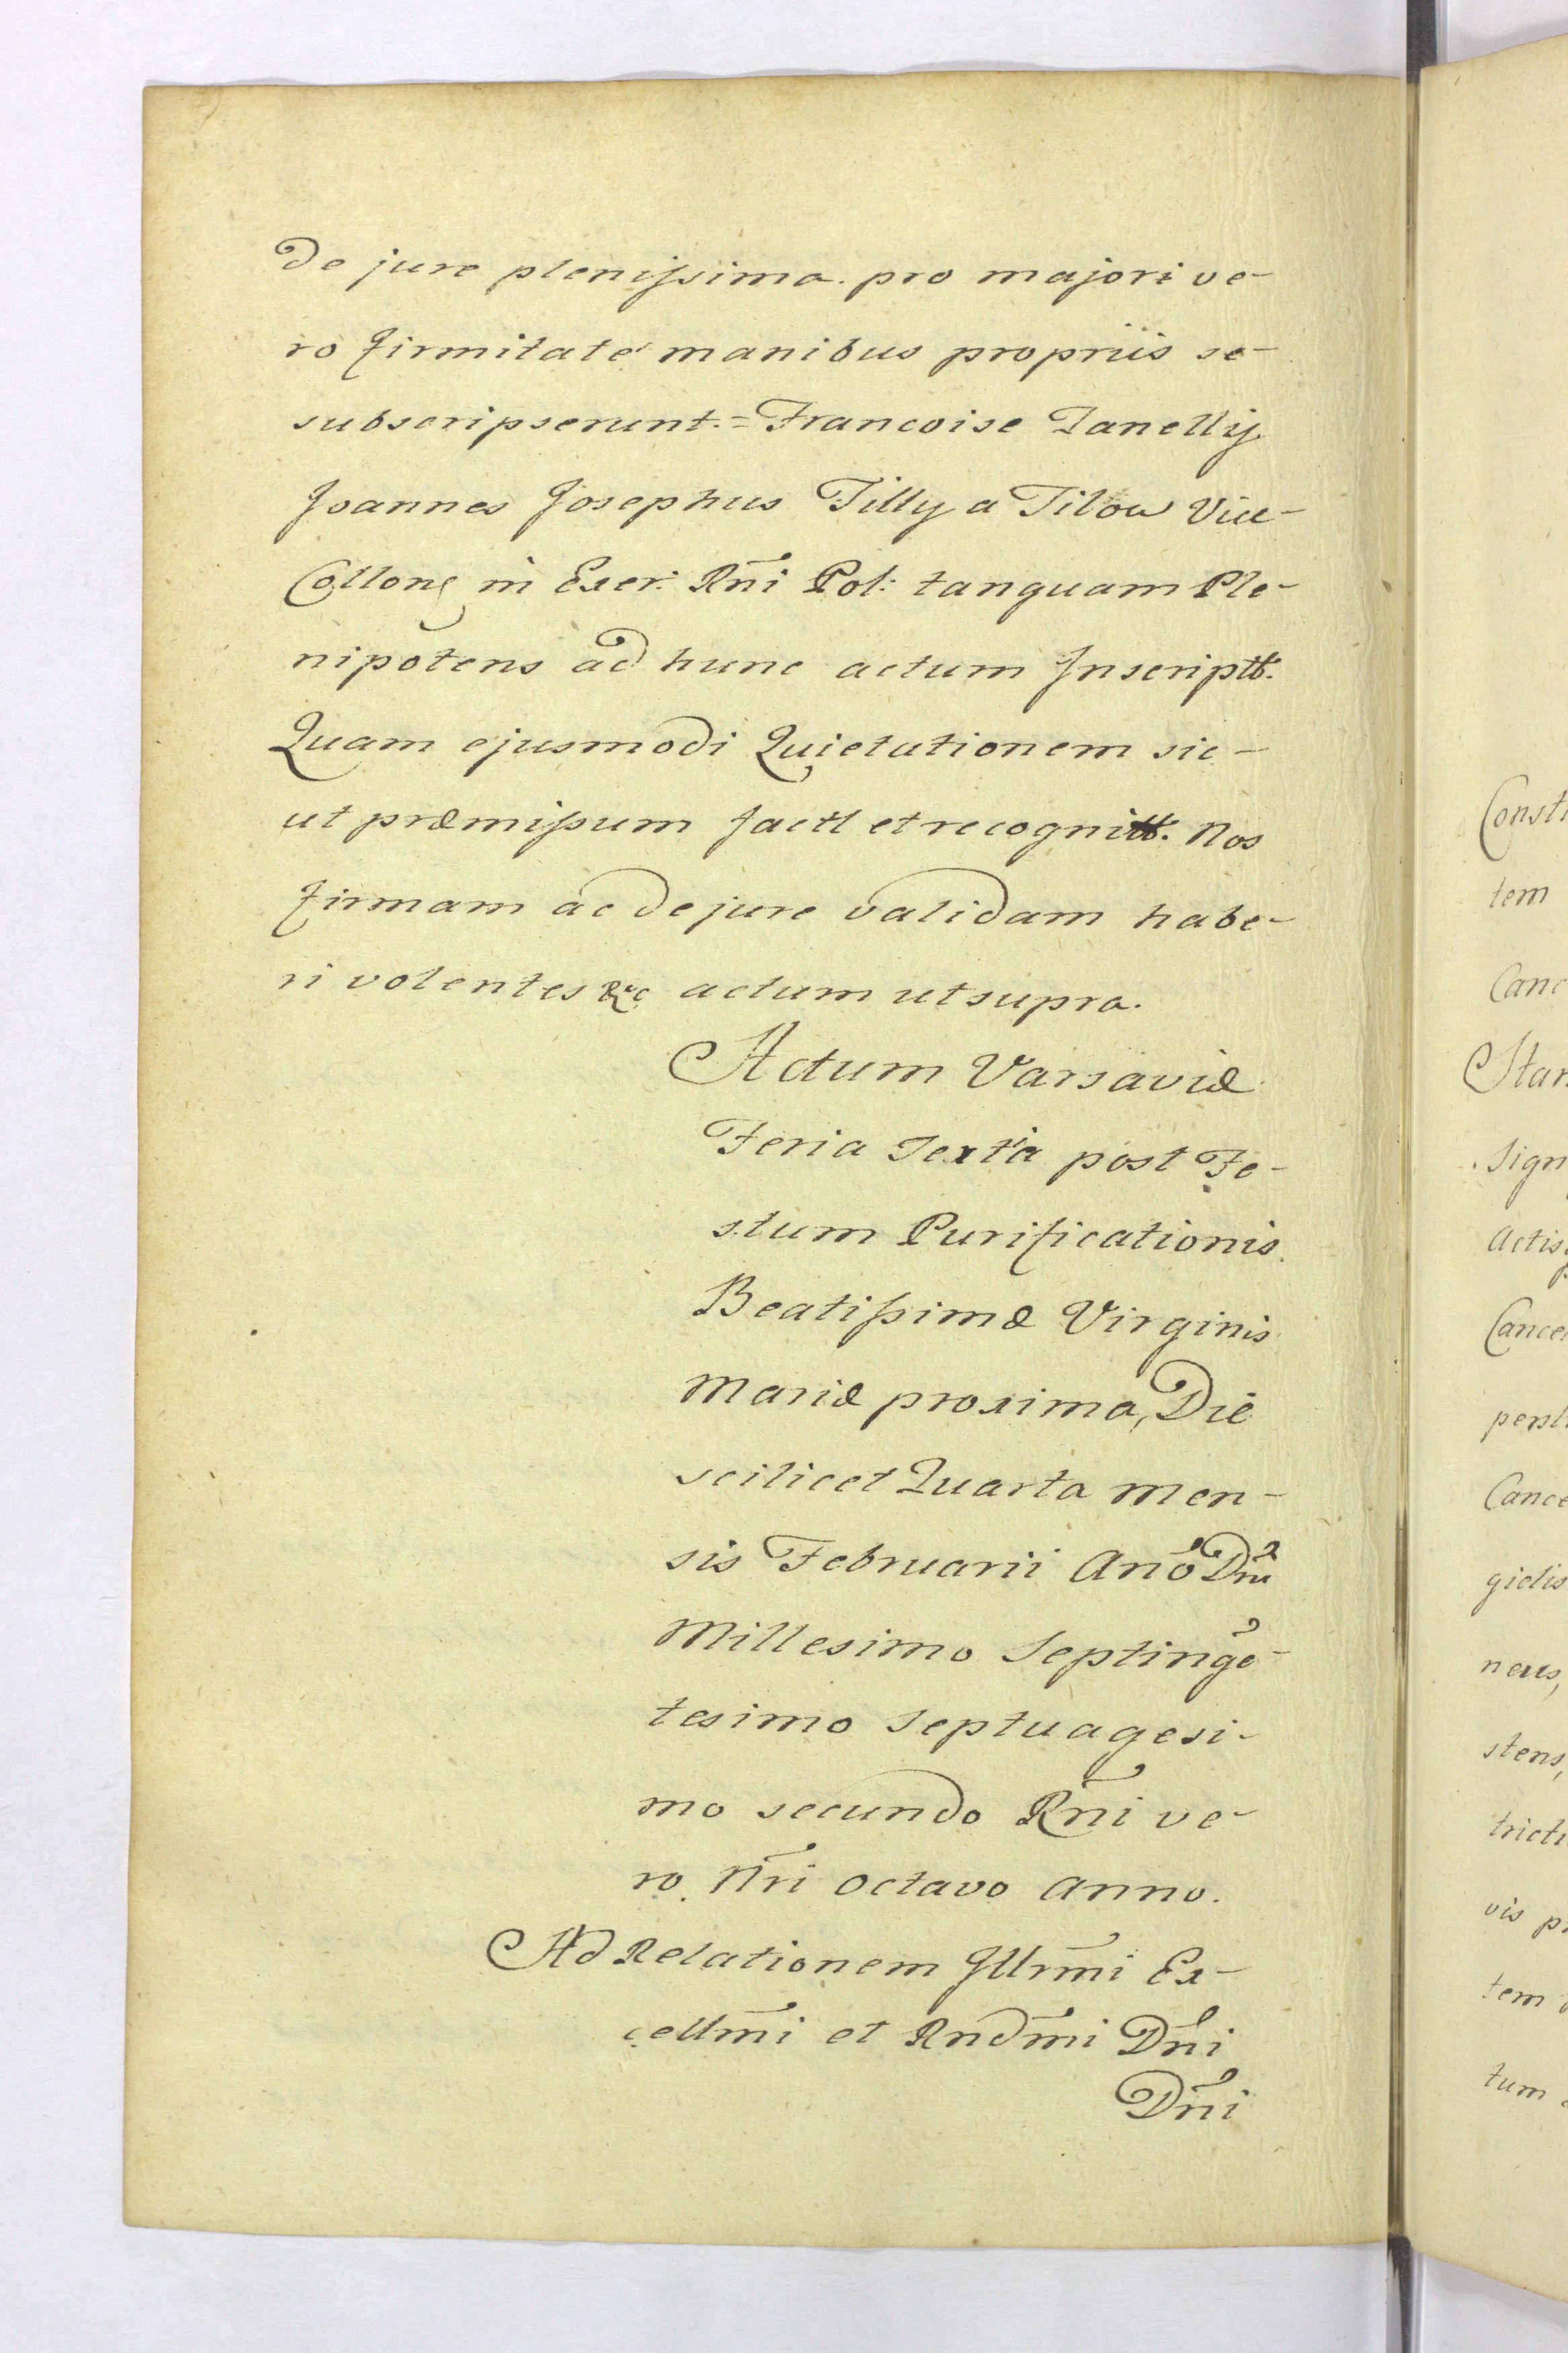 de jure plenissima. pro majori ve-
ro firmitate manibus propriis se-
subscripserunt.= Francoise Zanelly
Joannes Josephus Tilly a Tilow Vice-
Collonę in Exer: Rñi Pol: tanquam Ple-
nipotens ad hunc actum Inscriptt.
Quam ejusmodi Quietationem sic-
ut præmissum factt et recognitt. Nos
firmam ac de jure validam habe-
ri volentes &c actum ut supra.
Actum Varsaviæ
Feria Sexta post Fe-
stum Purificationis
Beatissimæ Virginis
Mariæ proxima, Die
scilicet Quarta Men-
sis Februarii Anõ Dñi
Millesimo Septinge̅-
tesimo Septuagesi-
mo secundo Rñi ve-
ro Nr̃i Octavo Anno.
Ad Relationem Illrm̃i Ex-
cellm̃i et Rndm̃i Dñi
Dñi
Consti
tem
Canc
Stan
Sign
Actis
Cance
perst
Cance
gielis
nens,
stens,
trictu
vis p
tem
tum